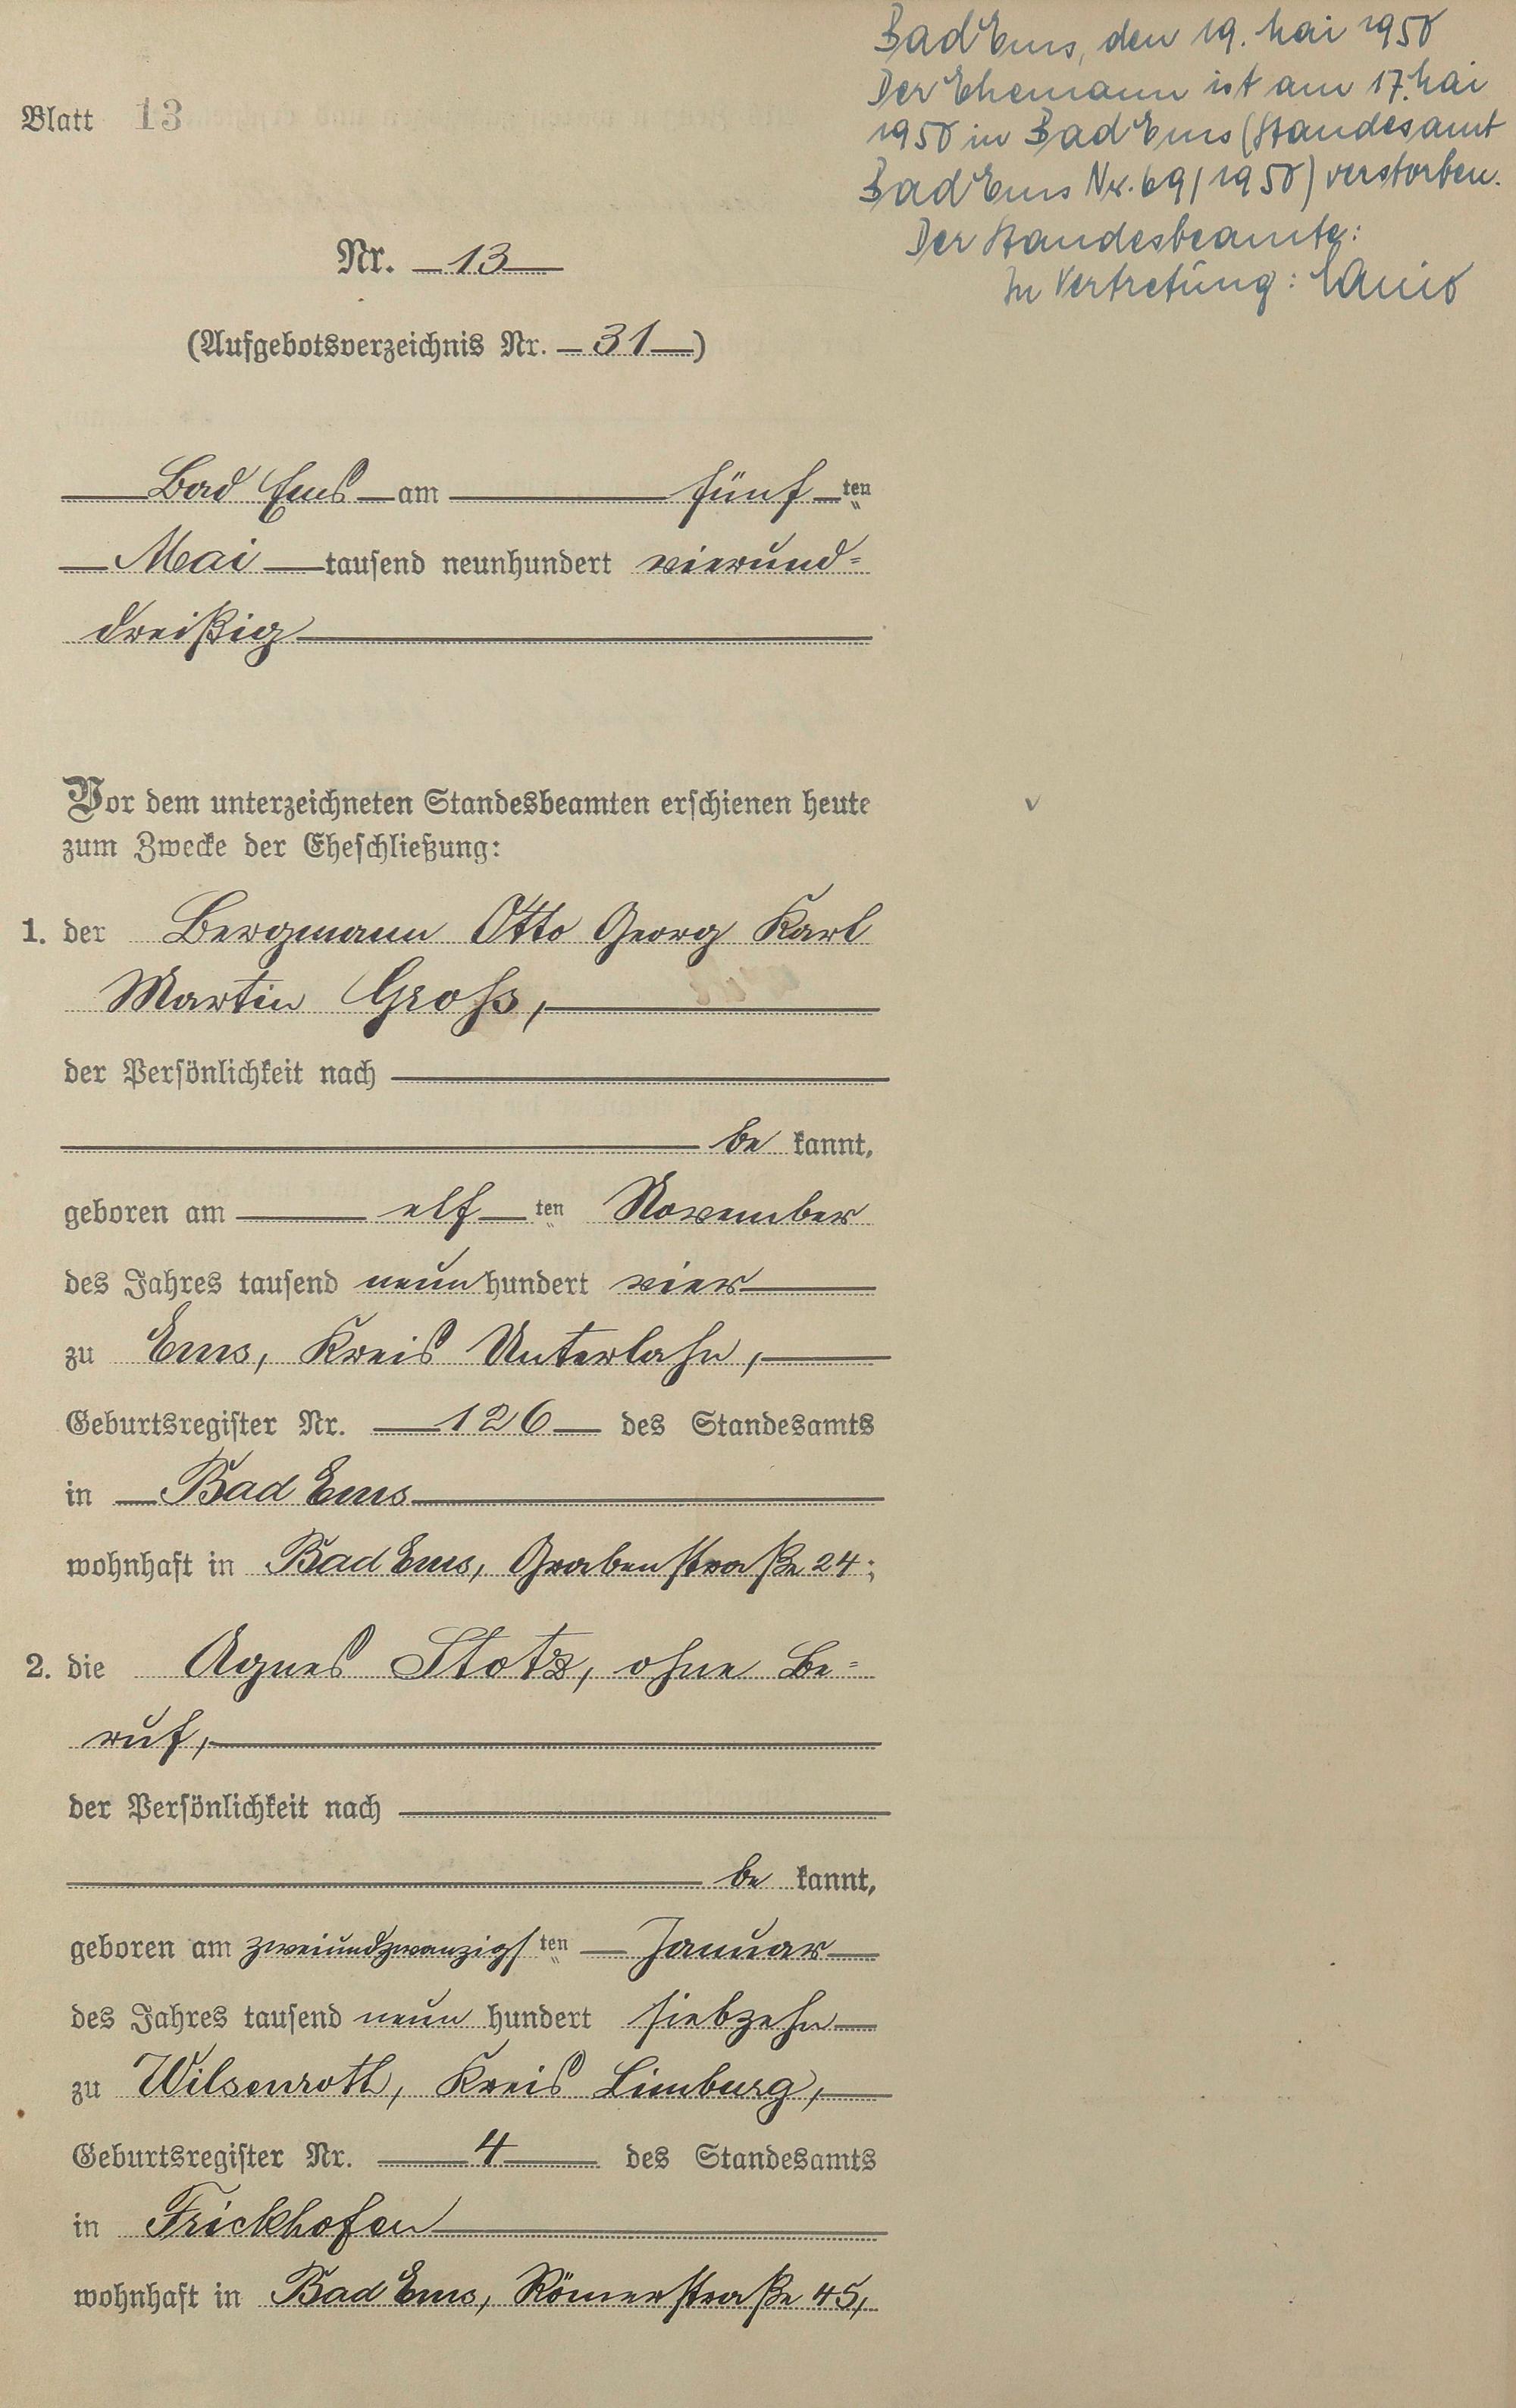 Bad Ems, den 19. Mai 1950
Der Ehemann ist am 17. Mai
1950 in Bad Ems (Standesamt
Bad Ems Nr. 69/1950) verstorben.
Der Standesbeamte:
In Vertretung:
Blatt 13
Nr. 13
(Aufgebotsverzeichnis Nr. 31)
Bad Ems am fünf ten
Mai tausend neunhundert vierund=
dreißig
Vor dem unterzeichneten Standesbeamten erschienen heute
zum Zwecke der Eheschließung:
1. der Bergmann Otto Georg Karl
Martin Groß,
der Persönlichkeit nach
be kannt,
geboren am elf ten November
des Jahres tausend neun hundert vier
zu Ems, Kreis Unterlahn,
Geburtsregister Nr. 126 des Standesamts
in Bad Ems
wohnhaft in Bad Ems, Grabenstraße 24;
2. die Agnes Stotz, ohne Be=
ruf,
der Persönlichkeit nach
be kannt,
geboren am zweiundzwanzigs ten Januar
des Jahres tausend neun hundert siebzehn
zu Wilsenroth, Kreis Limburg,
Geburtsregister Nr. 4 des Standesamts
in Frickhofen
wohnhaft in Bad Ems, Römerstraße 45,